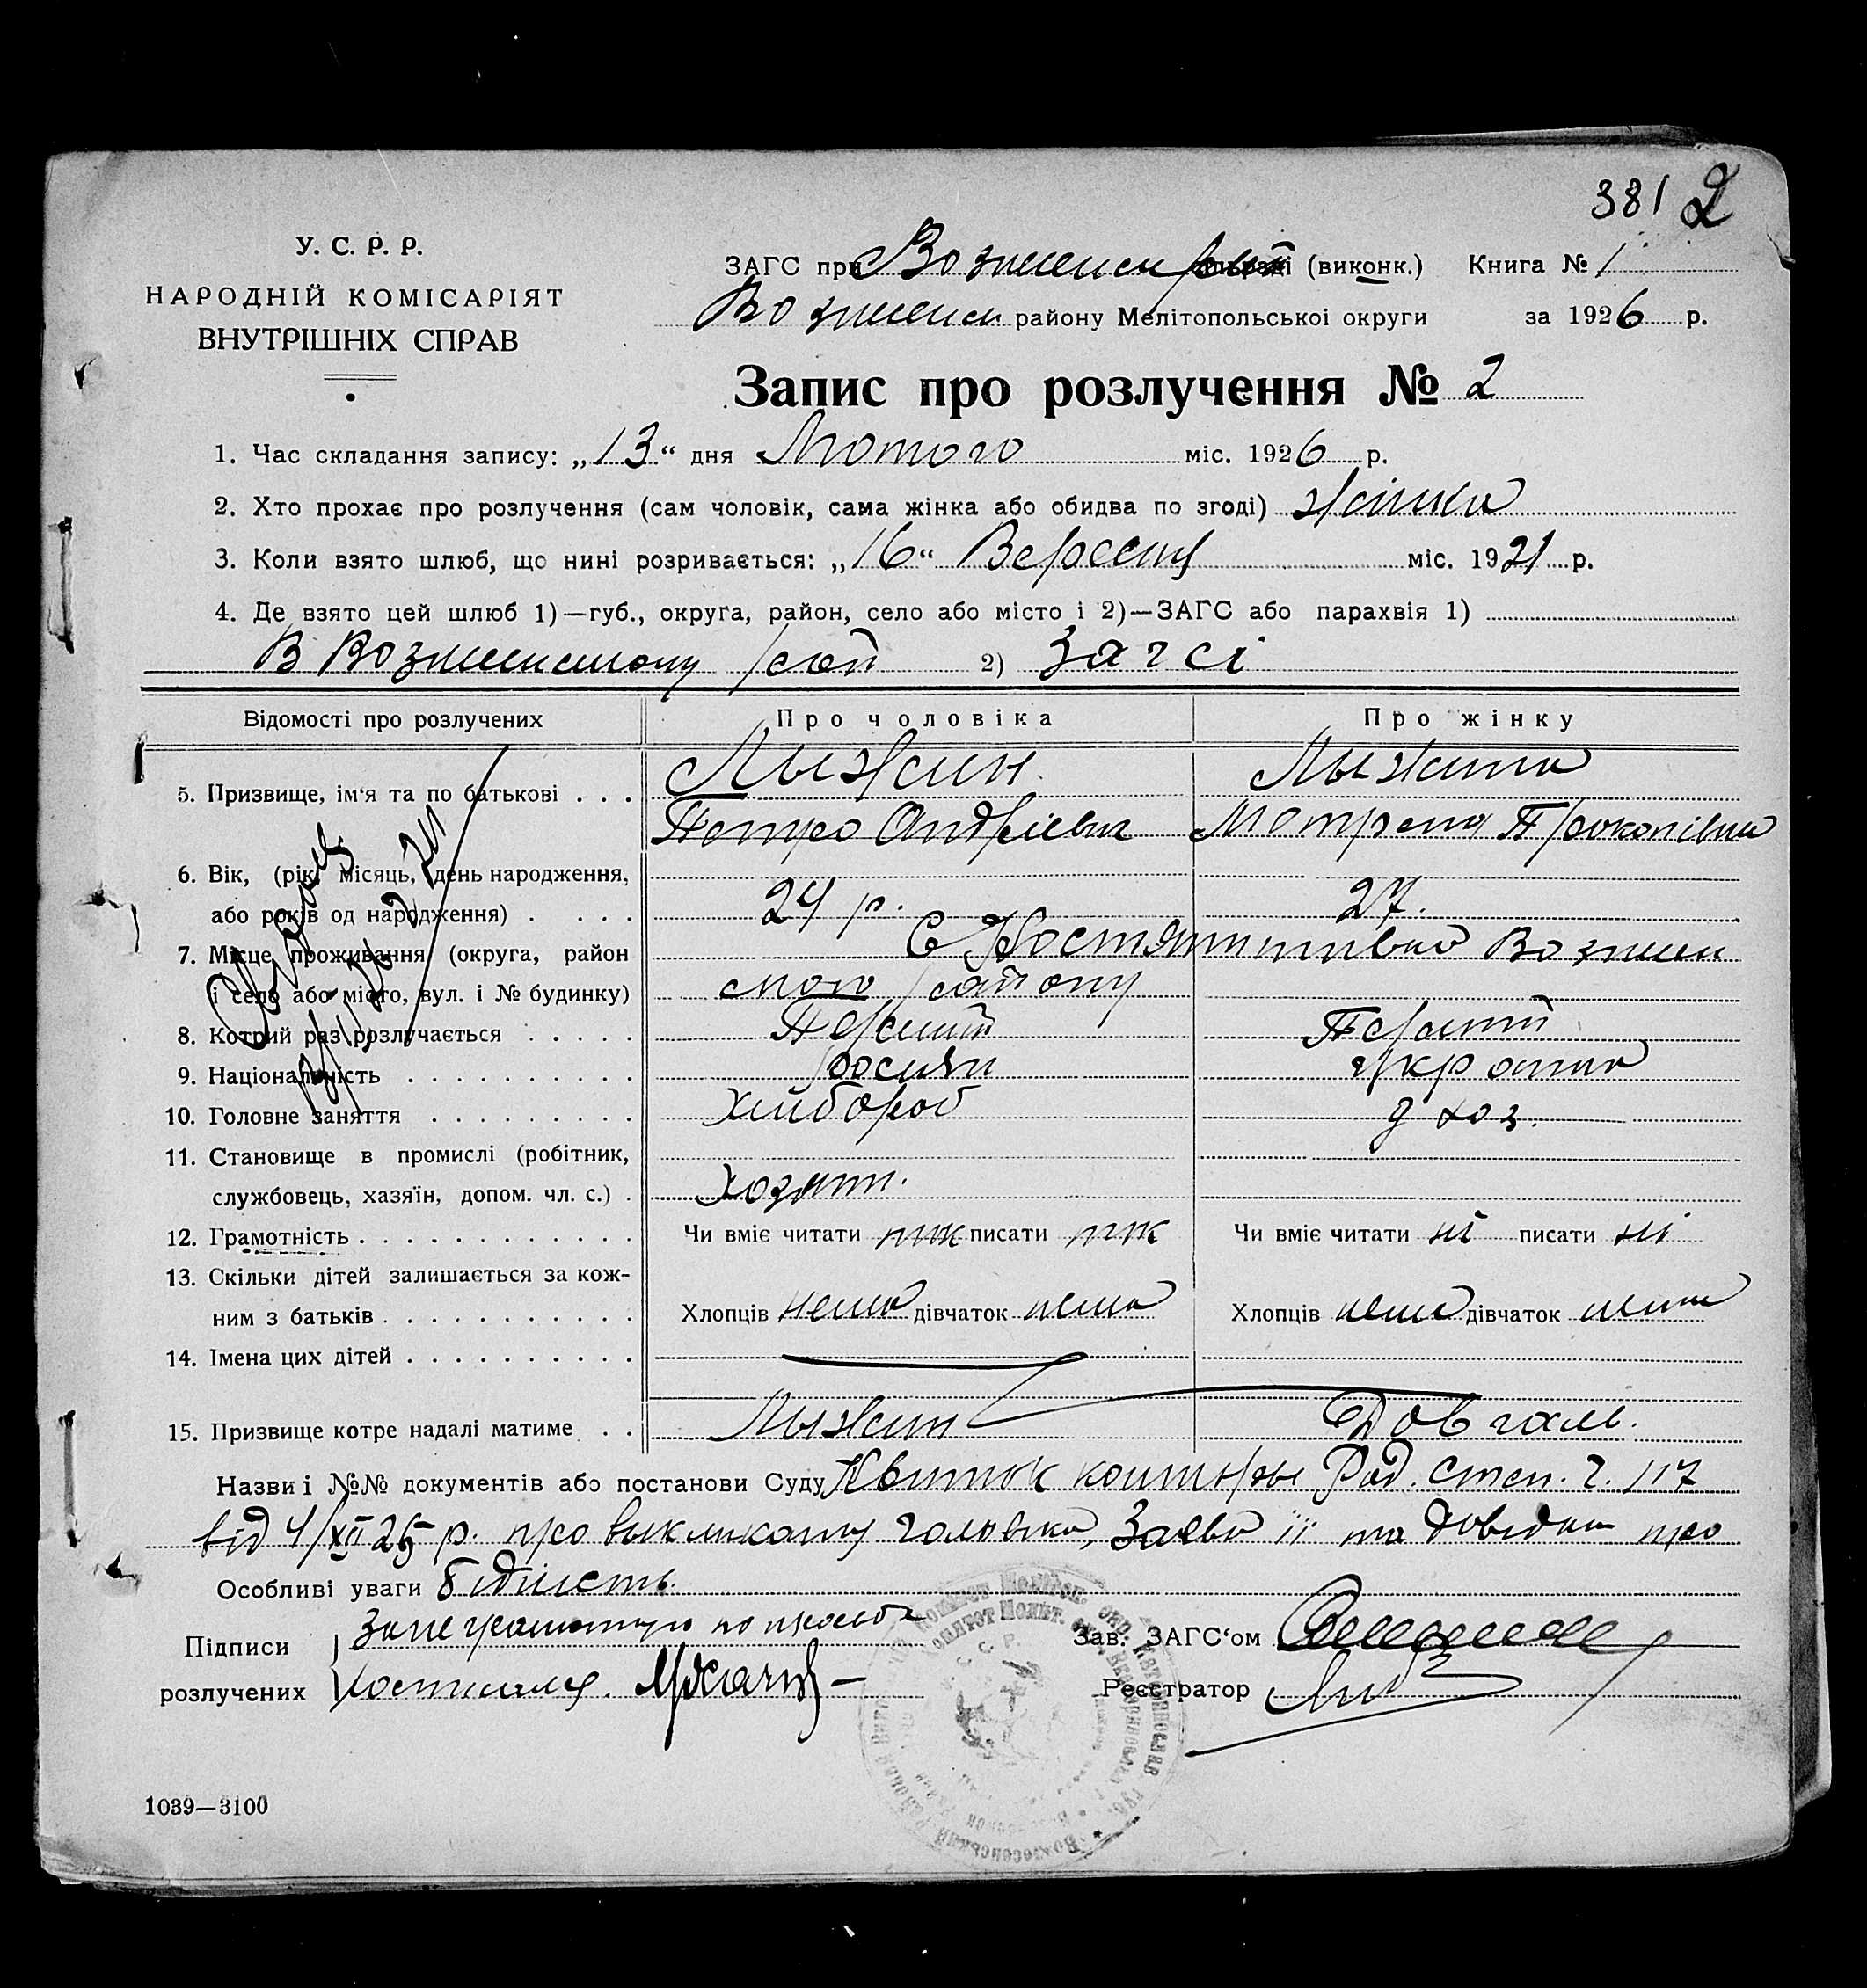 381 2
У. С. Р. Р.
НАРОДНІЙ КОМІСАРІЯТ
ВНУТРІШНІХ СПРАВ
ЗАГС при Вознесенск (виконк.) Книга № 1
Вознесенск району Мелітопольскої округи за 1926 р.
Запис про розлучення № 2
1. Час складання запису: „13“ дня Лютого міс. 1926 р.
2. Хто прохає про розлучення (сам чоловік, сама жінка або обидва по згоді) жінка
3. Коли взято шлюб, що нині розривається: „16“ Вересня міс. 1921 р.
4. Де взято цей шлюб 1)—губ., округа, район, село або місто і 2)—ЗАГС або парахвія 1)
В Вознесенському рай 2) Загсі
Відомості про розлучених Про чоловіка Про жінку
5. Призвище, ім‘я та по батькові . . . Лыжин Лыжина
Петро Андрієвич Мотрена Прокопівна
6. Вік, (рік, місяць, день народження,
або років од народження) . . . . 24 р. 27.
7. Місце проживання (округа, район С Костянтинівка Вознесен
і село або місто, вул. і № будинку) ського району
8. Котрий раз розлучається . . . . . Перший Перший
9. Національність . . . . . . . . . росіян українка
10. Головне заняття . . . . . . . . хлібороб д хоз.
11. Становище в промислі (робітник,
службовець, хазяїн, допом. чл. с.) . Хозяин.
12. Грамотність . . . . . . . . . . . . Чи вміє читати так писати так Чи вміє читати ні писати ні
13. Скільки дітей залишається за кож-
ним з батьків . . . . . . . . . . . Хлопців нема дівчаток нема Хлопців нема дівчаток нема
14. Імена цих дітей . . . . . . . . . .
15. Призвище котре надалі матиме . . Лыжин Довгаль.
Назви і №№ документів або постанови Суду Квиток контори Рад. Степ. ч. 117
від 4/XII 25 р. про выкликану чоловіка, Заява її та довідка про
Особливі уваги бідність.
Підписи За неграмотную по просьбе
розлучених
Зав. ЗАГС‘ом
Реєстратор
1039—3100